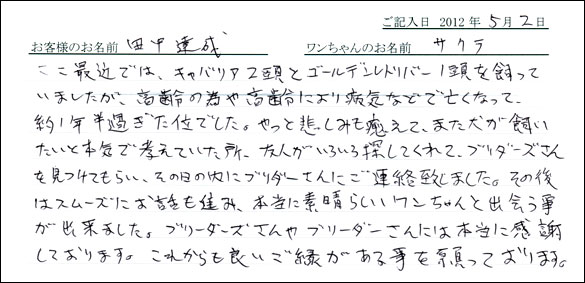 ご記入日 2012年5月2日
お客様のお名前 田中達成 ワンちゃんのお名前 サクラ
ここ最近では、キャバリア2頭とゴールデンレトリバー1頭を飼って
いましたが、高齢の為や高齢により病気などで亡くなって、
約1年半過ぎた位でした。やっと悲しみも癒えて、また犬が飼い
たいと本気で考えていた所、友人がいろいろ探してくれて、ブリーダーズさん
を見つけてもらい、その日の内にブリーダーさんにご連絡致しました。その後
はスムーズにお話も進み、本当に素晴らしいワンちゃんと出会う事
が出来ました。ブリーダーズさんやブリーダーさんには本当に感謝
しております。これからも良いご縁がある事を願っております。